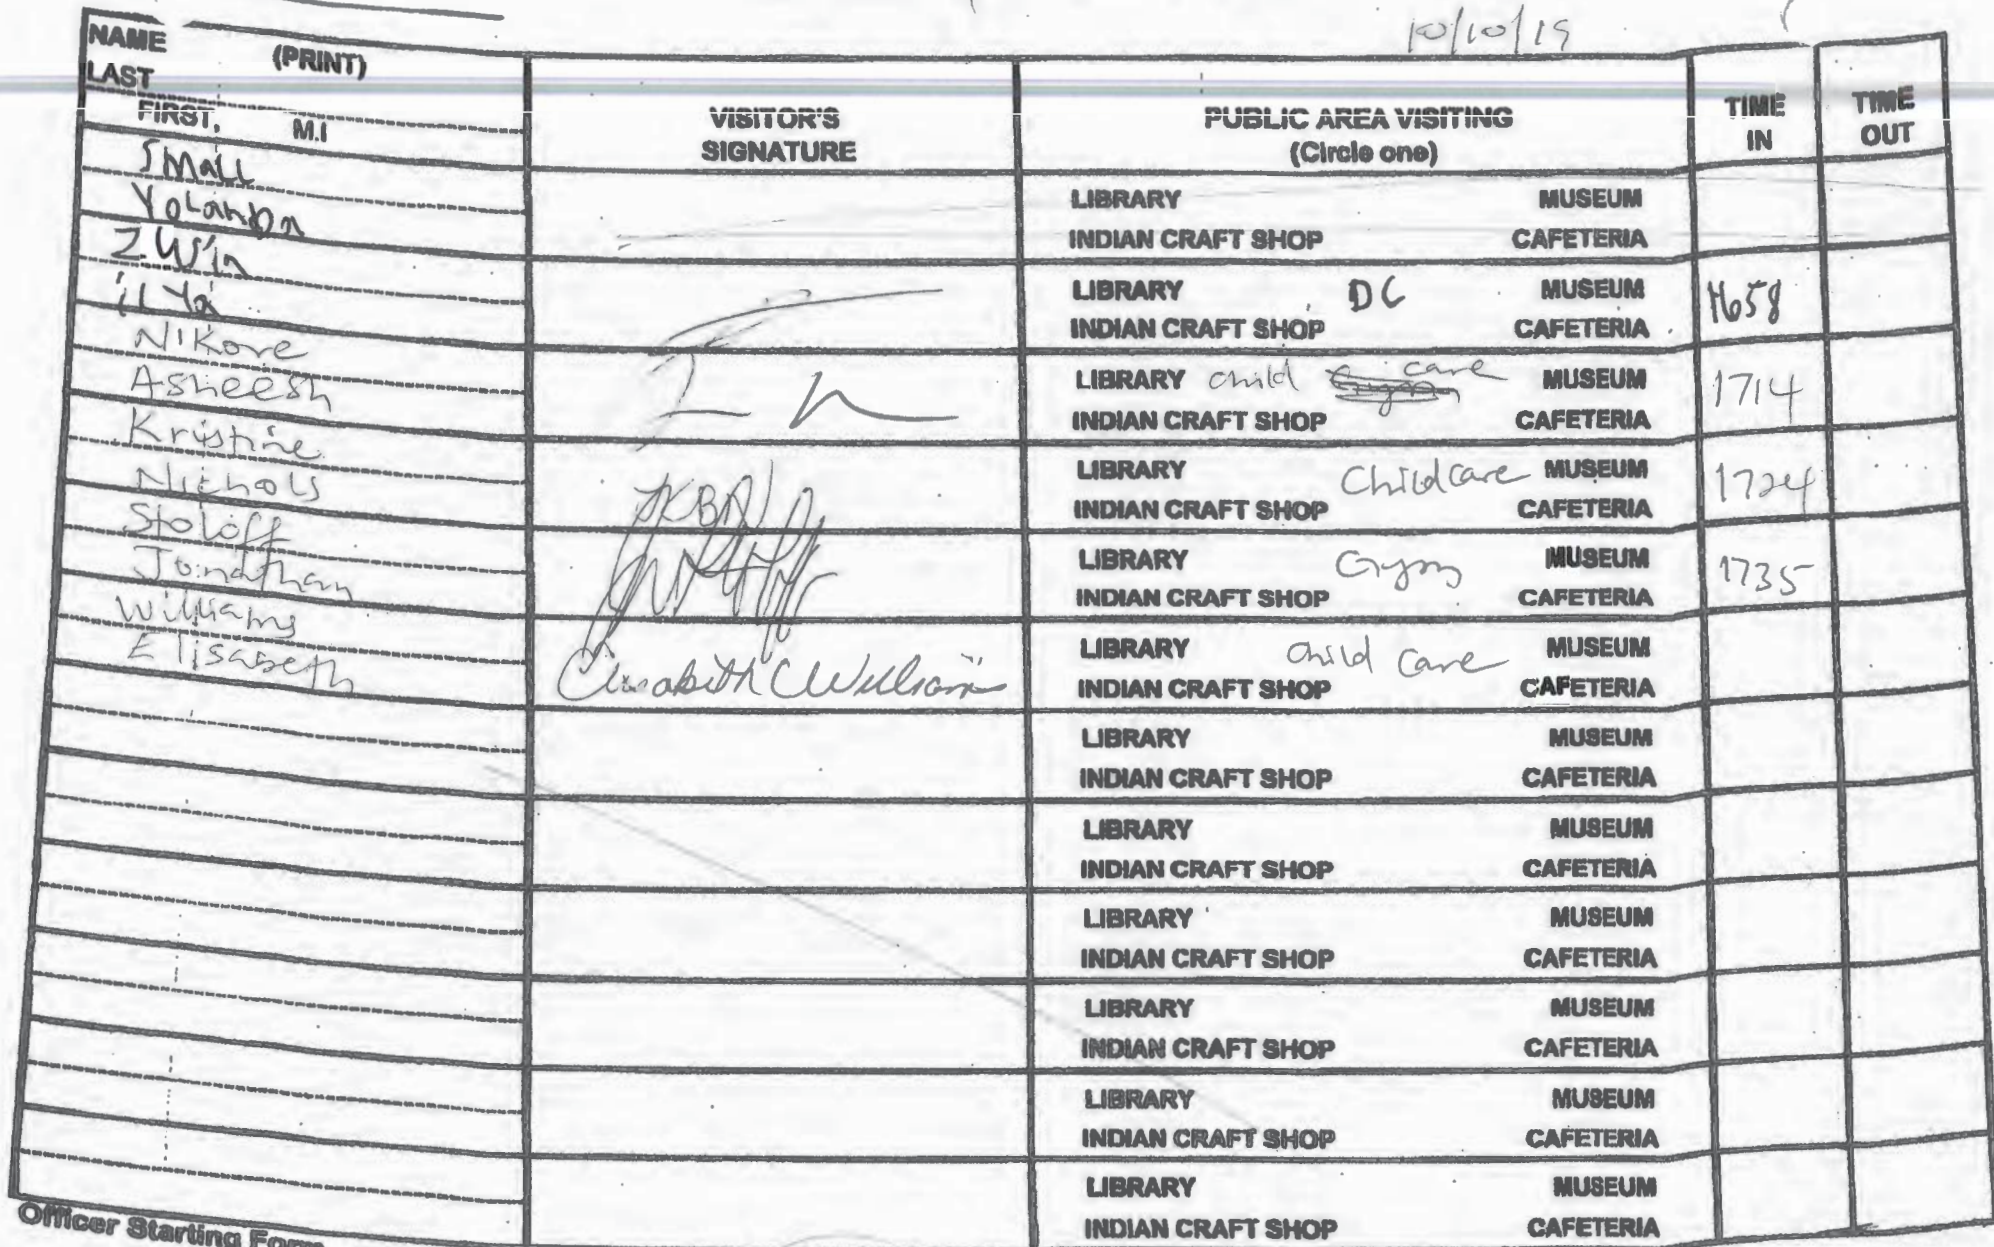 10/10/19
NAME (PRINT)
LAST
FIRST, M.I
VISITOR'S SIGNATURE
PUBLIC AREA VISITING (Circle one)
TIME IN
TIME OUT
Small
Yolanda
LIBRARY MUSEUM
INDIAN CRAFT SHOP CAFETERIA
Zwin
ilya
LIBRARY DC MUSEUM 1658
INDIAN CRAFT SHOP CAFETERIA
Nikore
Asheesh
LIBRARY child care MUSEUM 1714
INDIAN CRAFT SHOP CAFETERIA
Kristine
Nichols
LIBRARY Childcare MUSEUM 1724
INDIAN CRAFT SHOP CAFETERIA
Stoloff
Jonathan
LIBRARY Gym MUSEUM 1735
INDIAN CRAFT SHOP CAFETERIA
Williams
Elisabeth
Elisabeth C Williams
LIBRARY child care MUSEUM
INDIAN CRAFT SHOP CAFETERIA
LIBRARY MUSEUM
INDIAN CRAFT SHOP CAFETERIA
LIBRARY MUSEUM
INDIAN CRAFT SHOP CAFETERIA
LIBRARY MUSEUM
INDIAN CRAFT SHOP CAFETERIA
LIBRARY MUSEUM
INDIAN CRAFT SHOP CAFETERIA
LIBRARY MUSEUM
INDIAN CRAFT SHOP CAFETERIA
LIBRARY MUSEUM
INDIAN CRAFT SHOP CAFETERIA
Officer Starting Form